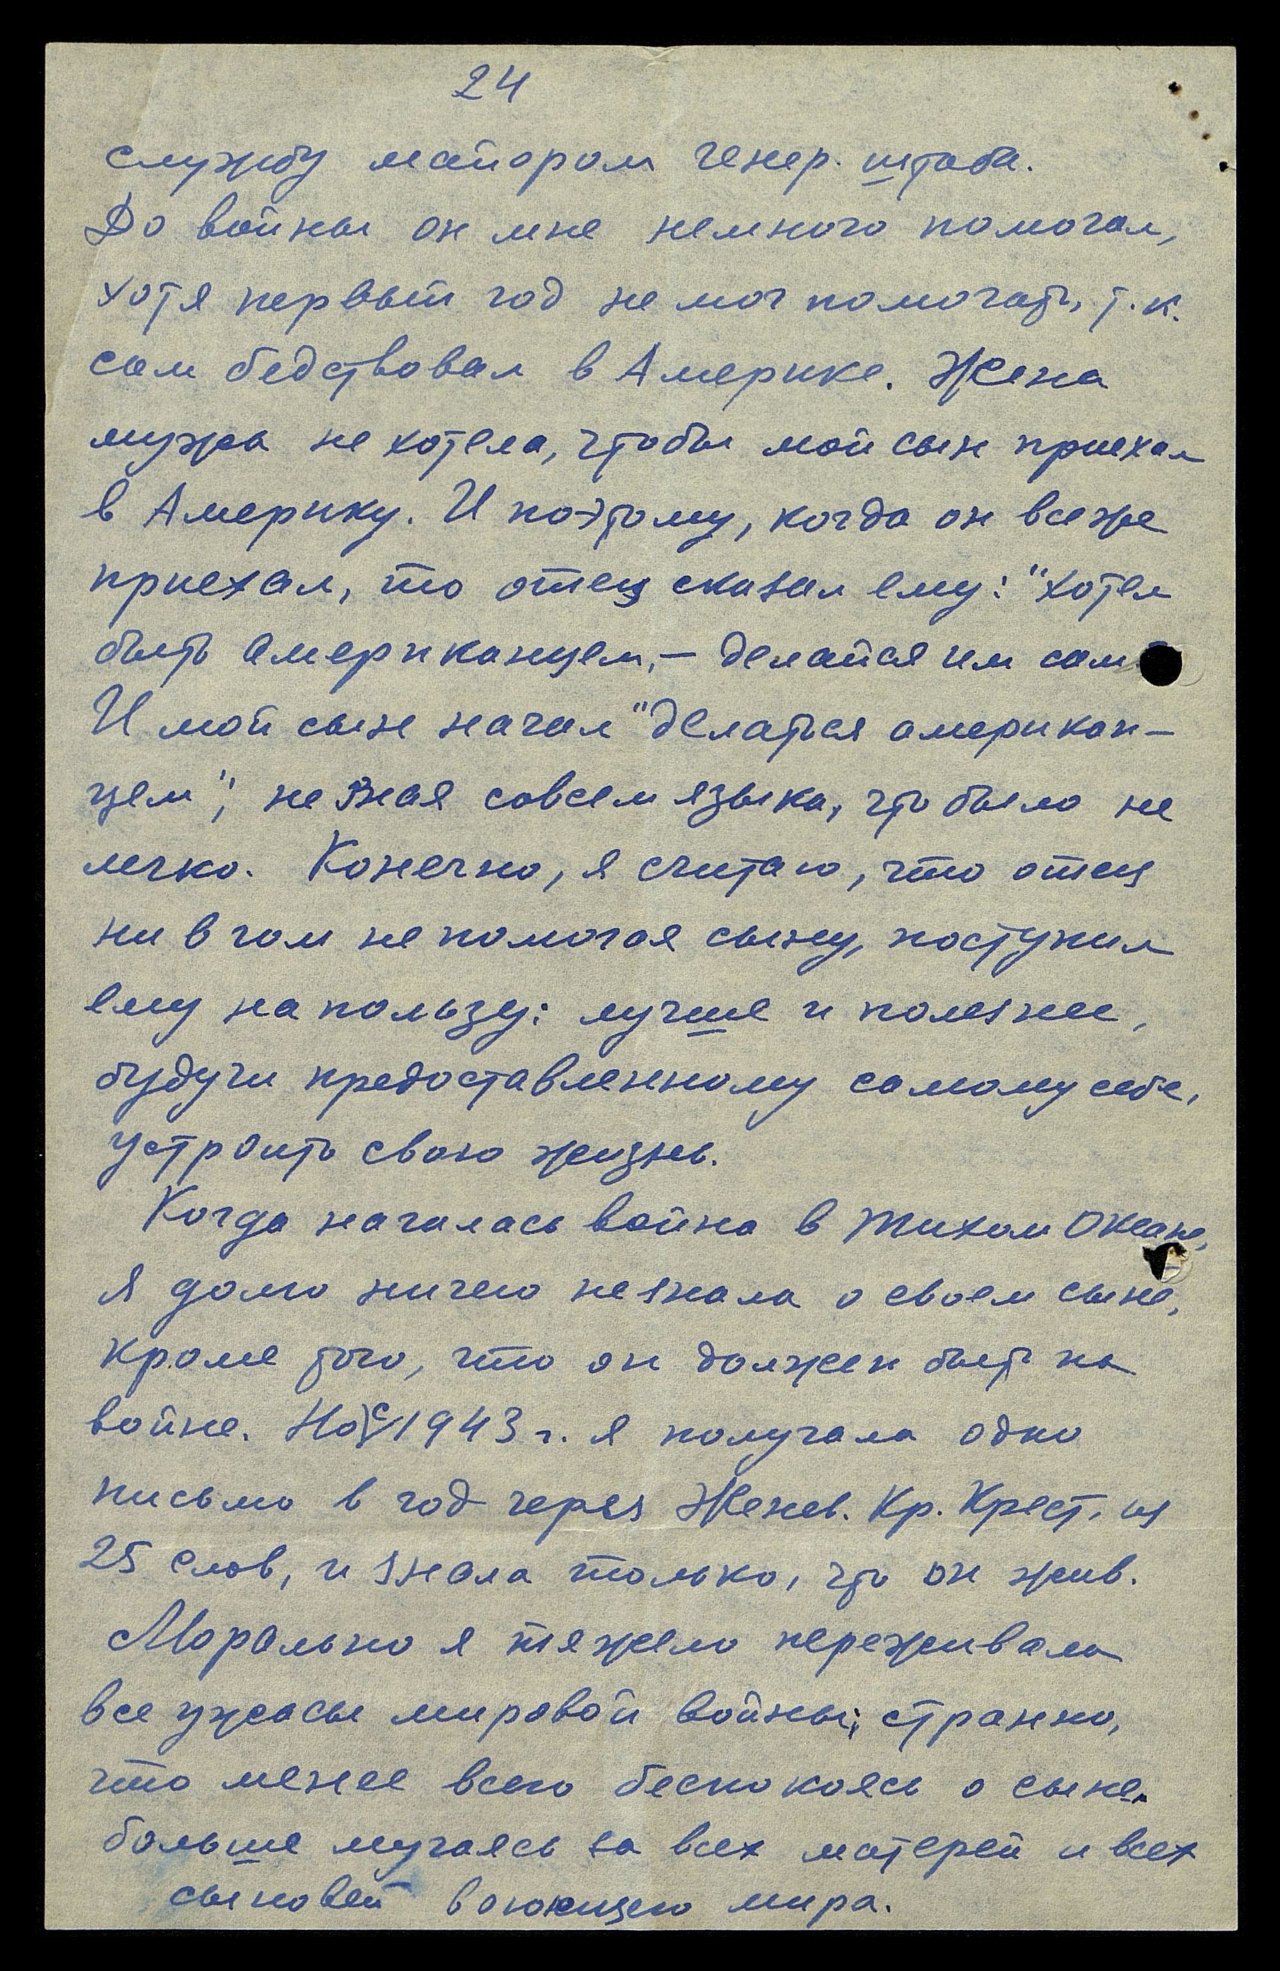 24
службу майором генер. штаба.
До войны он мне немного помогал,
хотя первый год не мог помогать, т.к.
сам бедствовал в Америке. Жена
мужа не хотела, чтобы мой сын приехал
в Америку. И поэтому, когда он все же
приехал, то отец сказал ему: "хотел
быть американцем, – делайся им сам
И мой сын начал "делаться американ-
цем", не зная совсем языка, что было не
легко. Конечно, я считаю, что отец
ни в чом не помогая сыну, поступил
ему на пользу: лучше и полезнее,
будучи предоставленному самому себе,
устроить свою жизнь.
Когда началась война в Тихом Океане,
я долго ничего не знала о своем сыне,
кроме того, что он должен быть на
войне. Но с 1943 г. я получала одно
письмо в год через Женев. Кр. Крест, из
25 слов, и знала только, что он жив.
Морально я тяжело переживала
все ужасы мировой войны; странно,
что менее всего беспокоясь о сыне,
больше мучаясь за всех матерей и всех
сыновей воюющего мира.